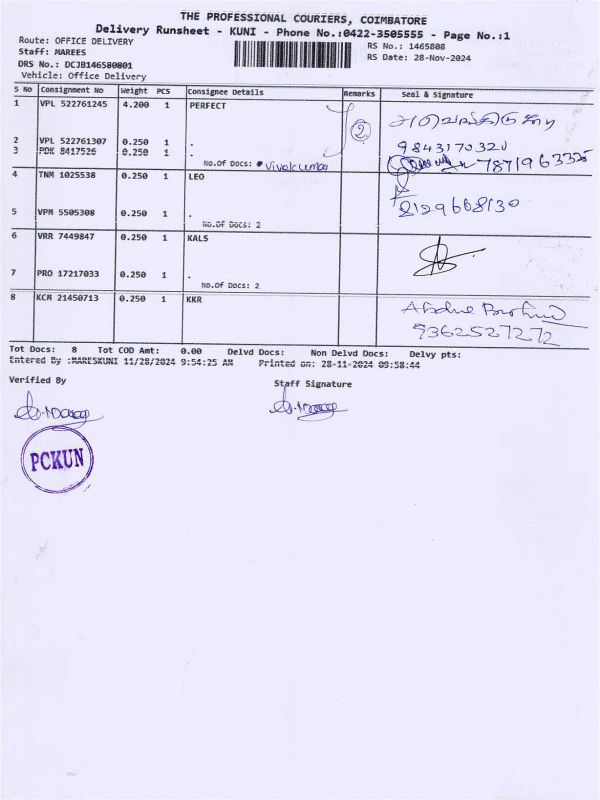 THE PROFESSIONAL COURIERS, COIMBATORE
Delivery Runsheet - KUNI - Phone No.:0422-3505555 - Page No.:1
Route: OFFICE DELIVERY RS No.: 1465808
Staff: MAREES RS Date: 28-Nov-2024
DRS No.: DCJB146580801
Vehicle: Office Delivery
S No Consignment No Weight PCS Consignee Details Remarks Seal & Signature
1 VPL 522761245 4.200 1 PERFECT
2 VPL 522761307 0.250 1 . 2 9843170320
3 PDK 8417526 0.250 1 .
No.Of Docs: Vivekumar 7871963325
4 TNM 1025538 0.250 1 LEO
5 VPM 5505308 0.250 1 . 8129668130
No.Of Docs: 2
6 VRR 7449847 0.250 1 KALS
7 PRO 17217033 0.250 1 .
No.Of Docs: 2
8 KCM 21450713 0.250 1 KKR
9362527272
Tot Docs: 8 Tot COD Amt: 0.00 Delvd Docs: Non Delvd Docs: Delvy pts:
Entered By :MARESKUNI 11/28/2024 9:54:25 AM Printed on: 28-11-2024 09:58:44
Verified By Staff Signature
PCKUN